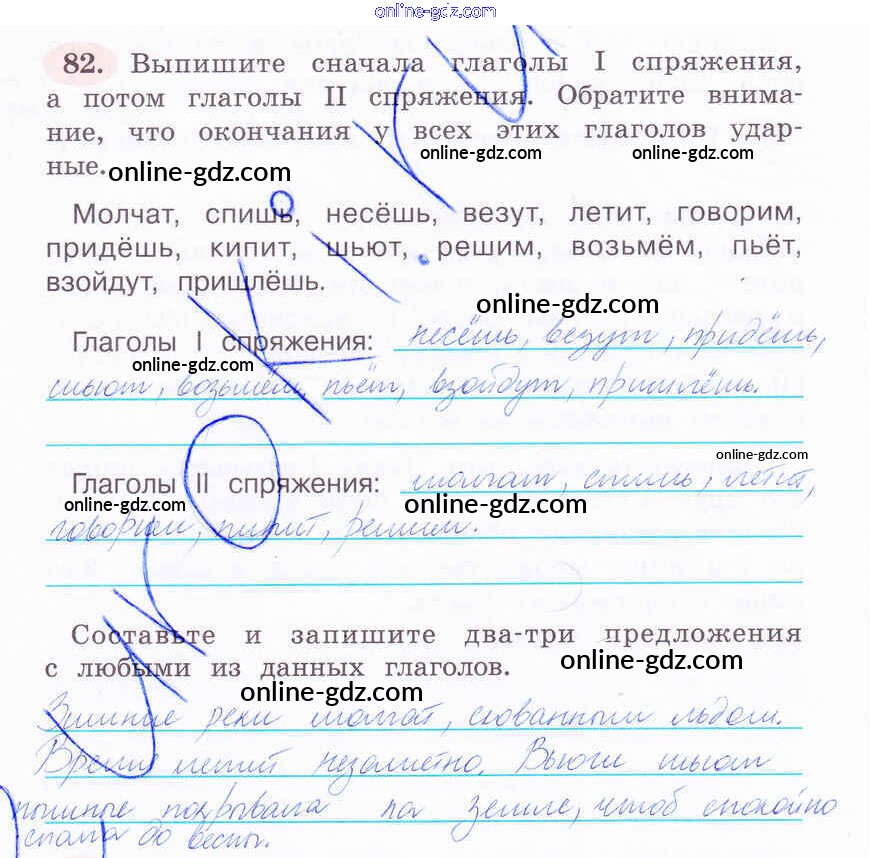 online-gdz.com
82. Выпишите сначала глаголы I спряжения,
а потом глаголы II спряжения. Обратите внима-
ние, что окончания у всех этих глаголов удар-
online-gdz.com online-gdz.com
ные.
online-gdz.com
Молчат, спишь, несёшь, везут, летит, говорим,
придёшь, кипит, шьют, решим, возьмём, пьёт,
взойдут, пришлёшь.
online-gdz.com
Глаголы I спряжения: несёшь, везут, придёшь,
online-gdz.com
шьют, возьмём, пьёт, взойдут, пришлёшь.
online-gdz.com
Глаголы II спряжения: молчат, спишь, летит,
online-gdz.com online-gdz.com
говорим, кипит, решим.
Составьте и запишите два-три предложения
с любыми из данных глаголов.
online-gdz.com
online-gdz.com
Зимние реки молчат, скованным льдом.
Время летит незаметно. Вьюги шьют
пышные покрывала на земле, чтоб спокойно
спала до весны.
urokiki.ru